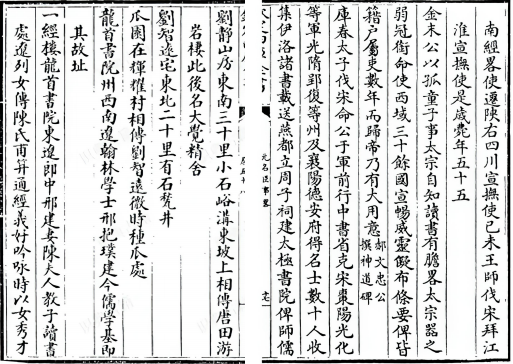 南經畧使遷陝右四川宣撫使已未王師伐宋拜江
淮宣撫使是歲薨年五十五
金末公以孤童子事太宗自知讀書有膽畧太宗器之
弱冠銜命使西域三十餘國宣暢威靈敷布條要俾皆
籍戶屬吏數年而歸帝乃有大用意郝文忠公撰神道碑
庫春太子伐宋命公于軍前行中書省克宋棗陽光化
等軍光隋郢復等州及襄陽德安府得名士數十人收
集伊洛諸書載送燕都立周子祠建太極書院俾師儒
元名臣事畧
劉靜山房東南三十里小石峪溝東坡上相傳唐田游
岩棲此後名大覺精舍
劉智遠宅東北二十里有石甃井
瓜園在輝耀村相傳劉智遠微時種瓜處
龍首書院州西南遼翰林學士邢抱璞建今儒學基即
其故址
一經樓龍首書院東遼郎中邢建妻陳夫人教子讀書
處遼列女傳陳氏甫笄通經義好吟咏時以女秀才